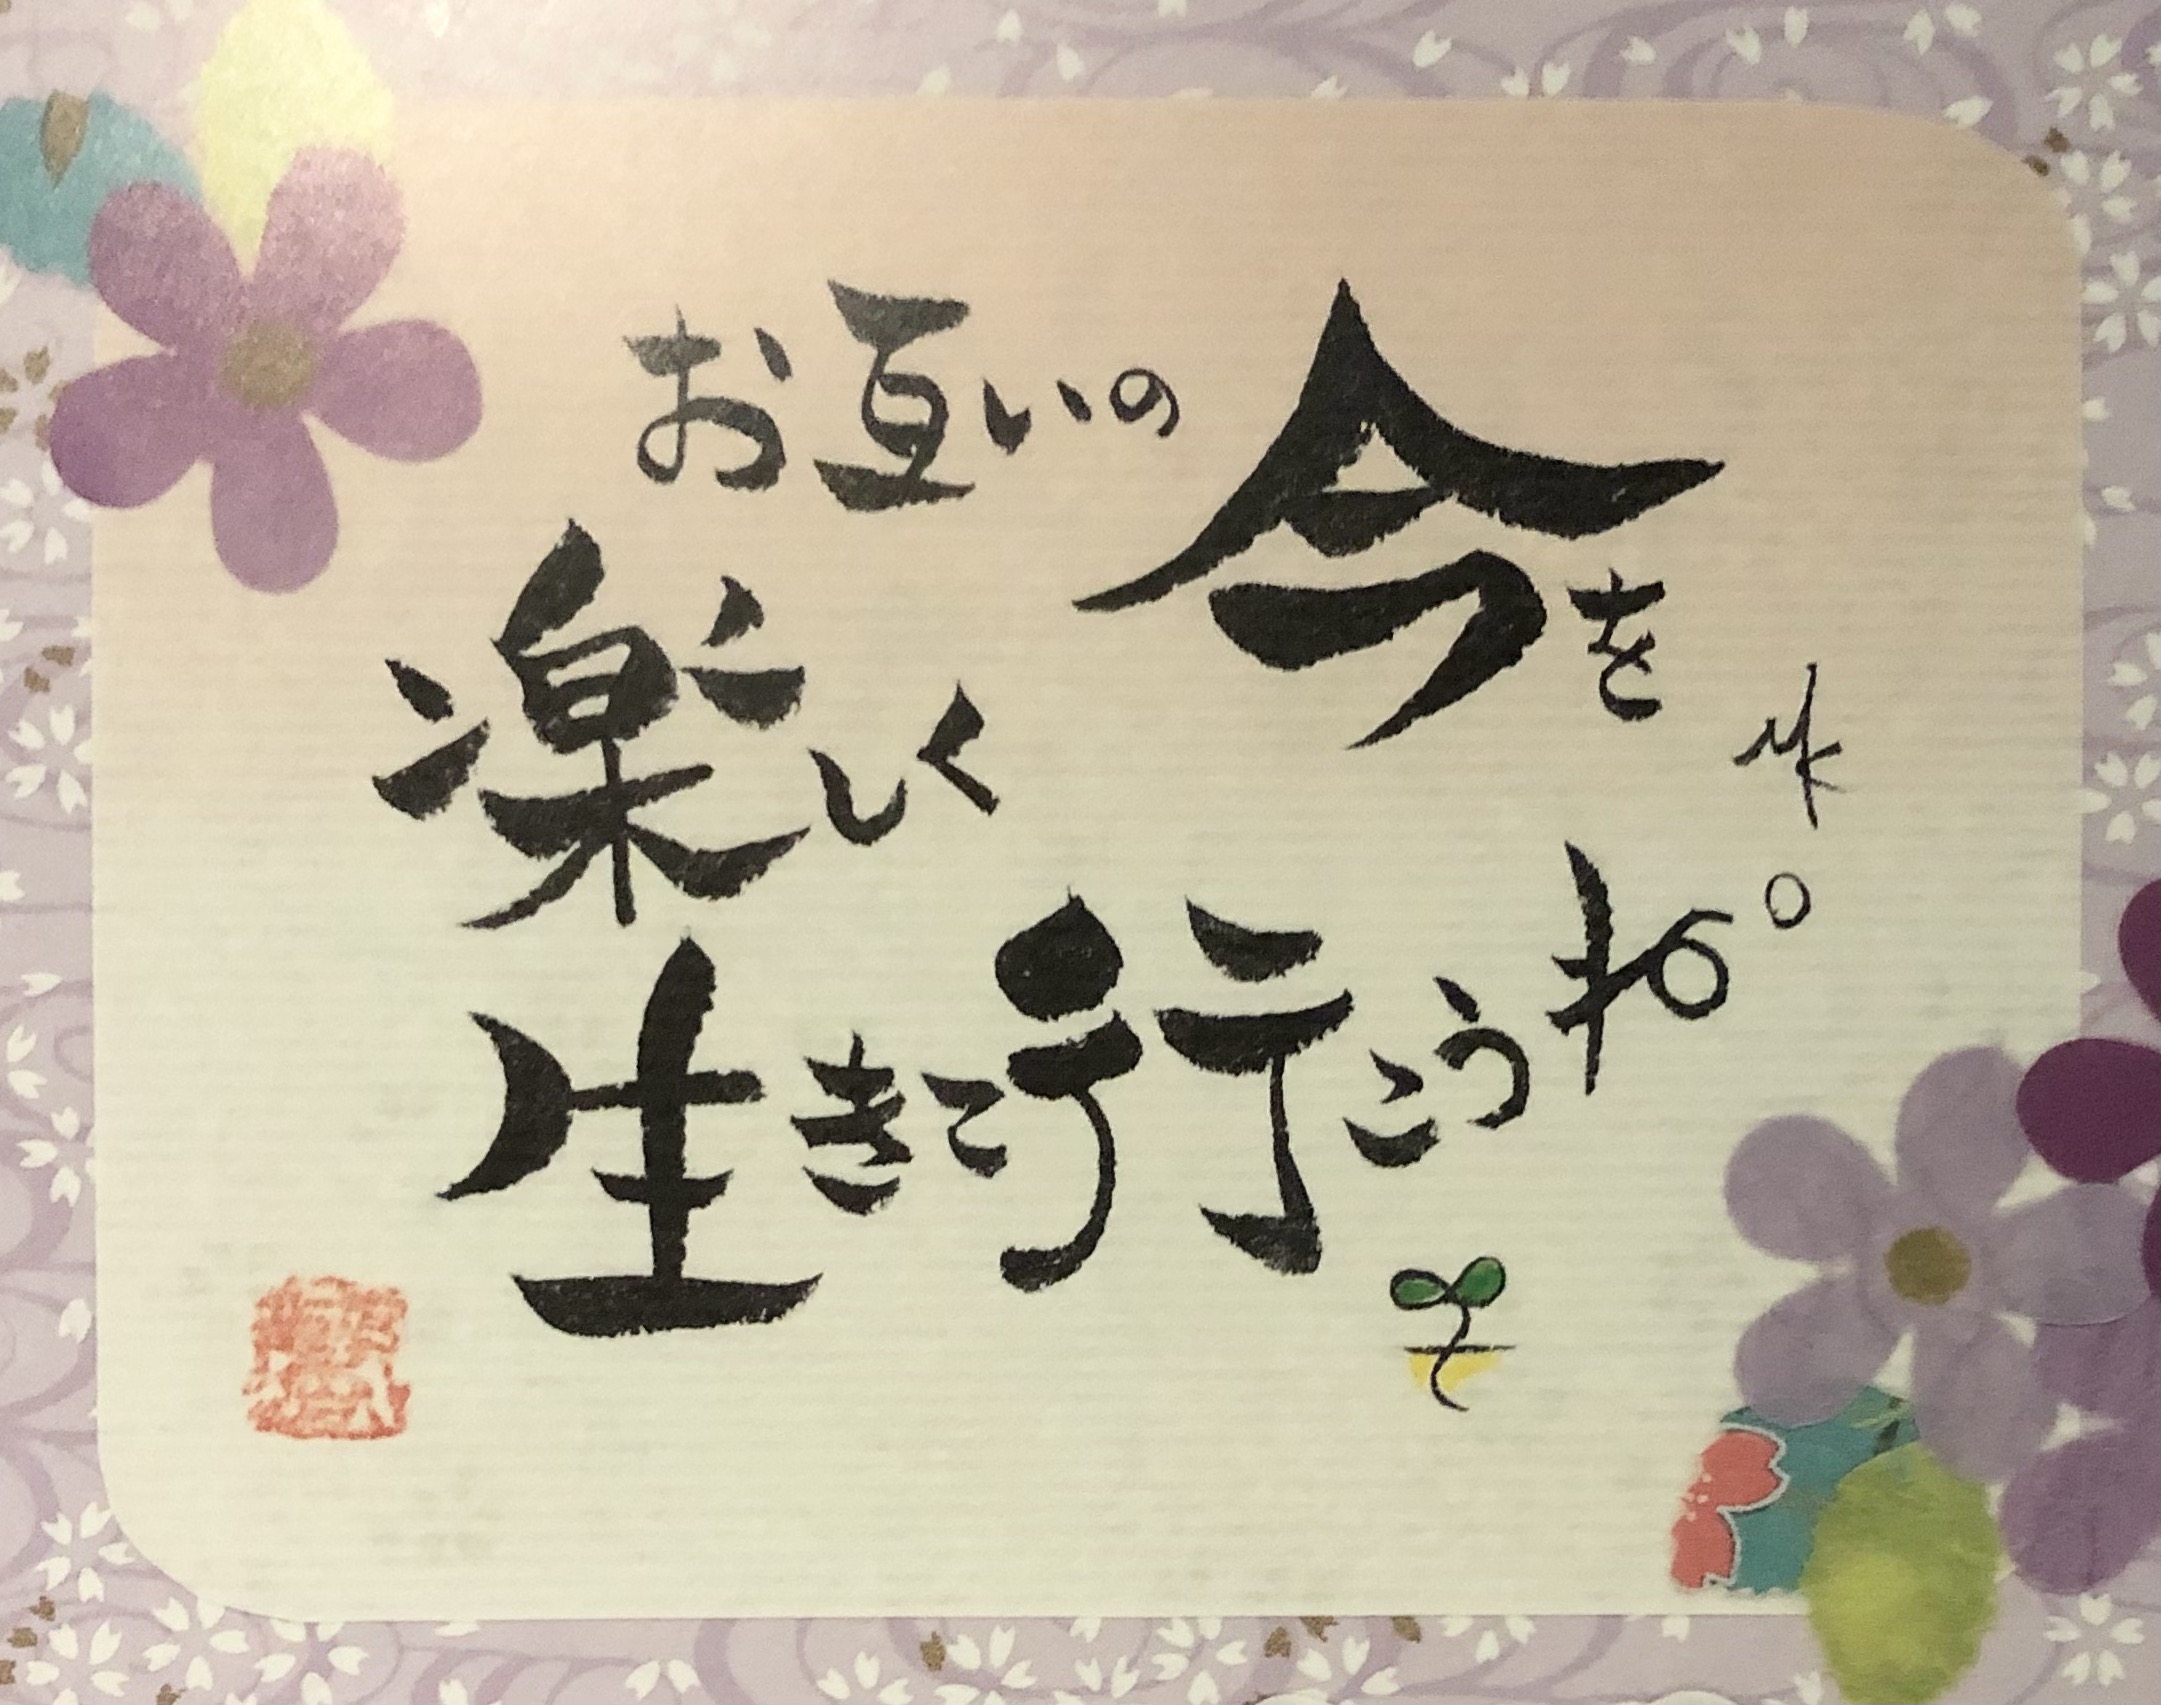 お互いの今を
楽しく
生きて行こうね。